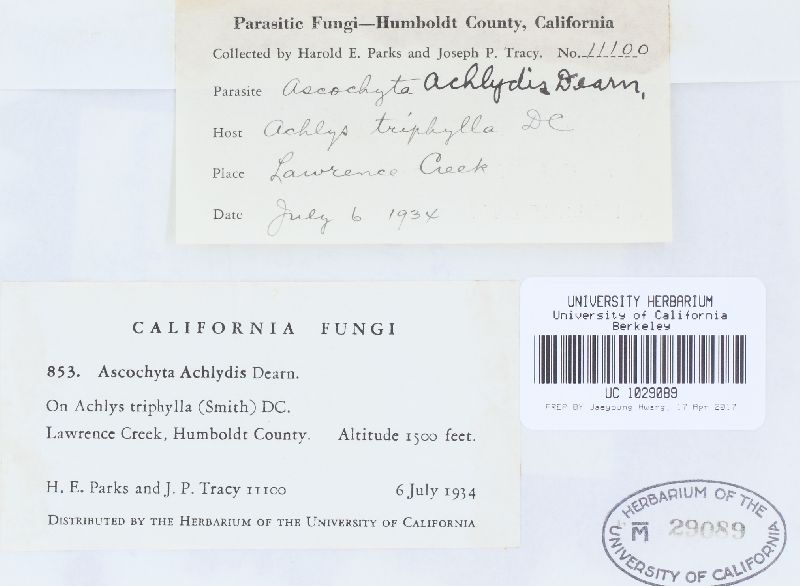 Parasitic Fungi—Humboldt County, California
Collected by Harold E. Parks and Joseph P. Tracy. No. 11100
Parasite Ascochyta achlydis Dearn.
Host Achlys triphylla DC
Place Lawrence Creek
Date July 6 1934
CALIFORNIA FUNGI
853. Ascochyta Achlydis Dearn.
On Achlys triphylla (Smith) DC.
Lawrence Creek, Humboldt County. Altitude 1500 feet.
H. E. Parks and J. P. Tracy 11100 6 July 1934
DISTRIBUTED BY THE HERBARIUM OF THE UNIVERSITY OF CALIFORNIA
UNIVERSITY HERBARIUM
University of California
Berkeley
UC 1029089
PREP BY Jaeyoung Hwang, 17 Apr 2017
HERBARIUM OF THE
M 29089
UNIVERSITY OF CALIFORNIA